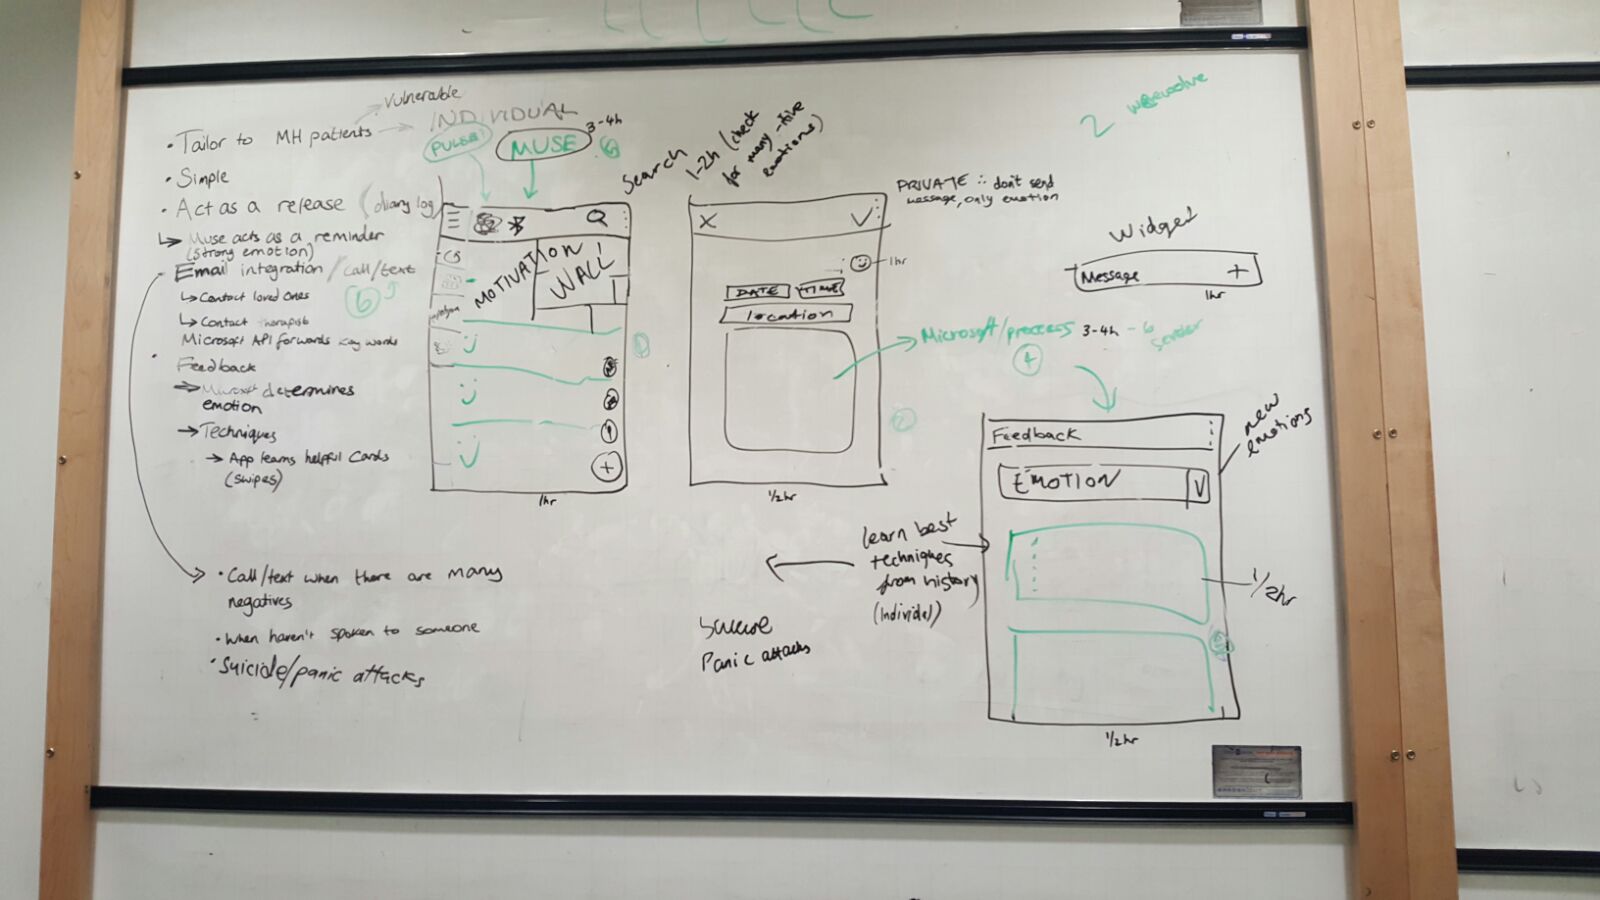 vulnerable
INDIVIDUAL
• Tailor to MH patients
• Simple
• Act as a release (diary log)
↳ Muse acts as a reminder
(strong emotion)
Email integration / call/text
6
↳ Contact loved ones
↳ Contact therapist
Microsoft API forwards key words
• Feedback
→ Microsoft determines
emotion
→ Techniques
→ App learns helpful cards
(swipes)
• Call/text when there are many
negatives
• When haven't spoken to someone
• Suicide/panic attacks
PULSE
MUSE
3-4h
MOTIVATION
WALL
+
1hr
Search
1-2h (check
for many -tive
emotions)
X
1hr
DATE
TIME
location
1/2hr
PRIVATE ∴ don't send
message, only emotion
Microsoft/process 3-4h - 6
4
2
Widget
Message +
1hr
Feedback
EMOTION V
new
emotions
1/2hr
1/2hr
learn best
techniques
from history
(Individal)
Panic attacks